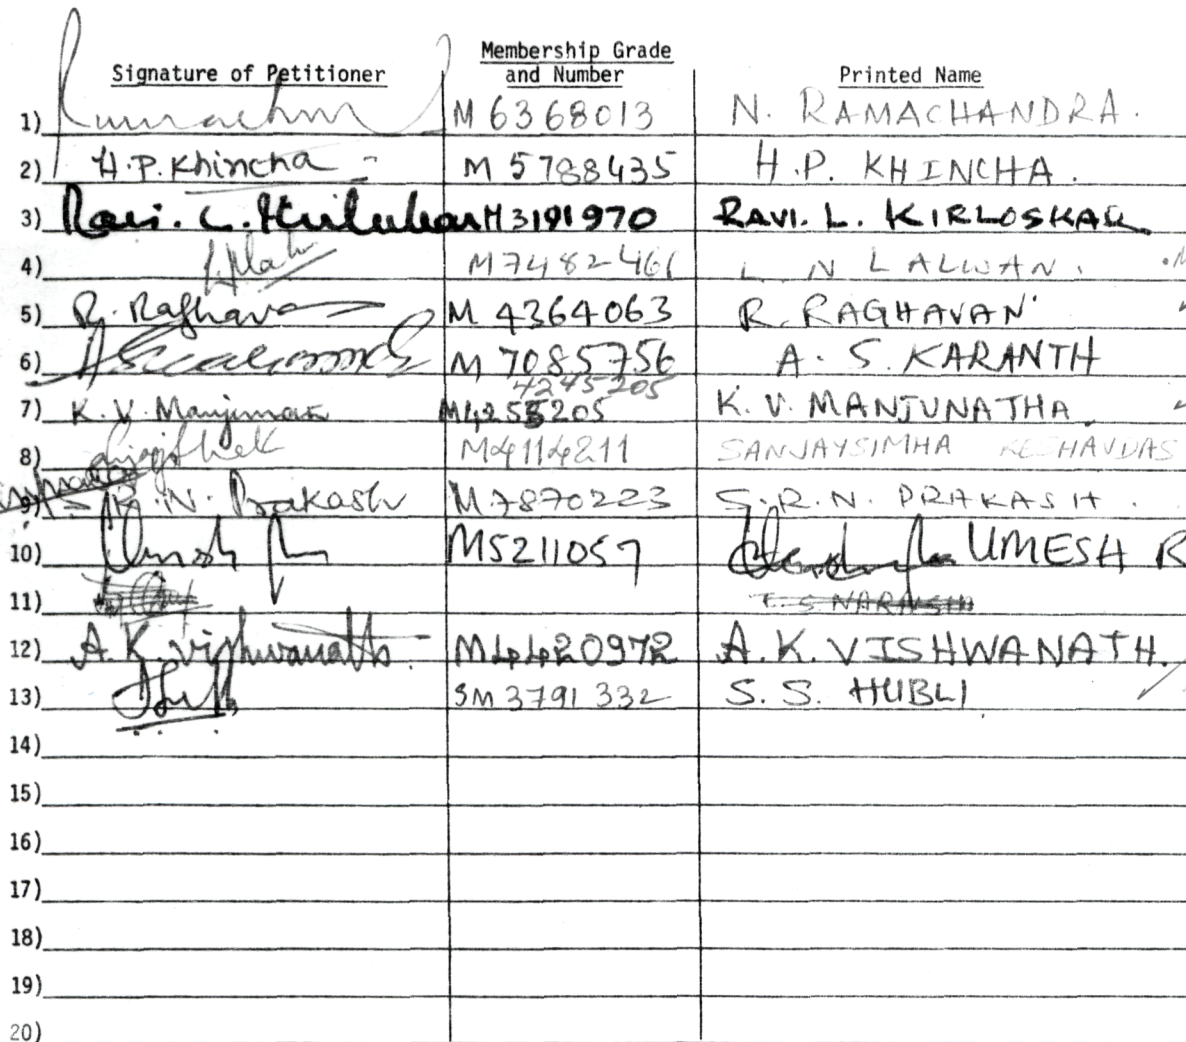 Signature of Petitioner Membership Grade and Number Printed Name
1) M 6368013 N. RAMACHANDRA.
2) H.P. Khincha M 5788435 H.P. KHINCHA.
3) Ravi. L. Kirloskar M3191970 RAVI. L. KIRLOSKAR
4) M7482461 L N LALWAN.
5) R. Raghavan M 4364063 R. RAGHAVAN
6) M 7085756 A. S. KARANTH
4245205
7) K. V. Manjunath M4255205 K. V. MANJUNATHA
8) M4114211 SANJAYSIMHA KESHAVDAS
9) R. N. Prakash M7870223 S.R.N. PRAKASH.
10) Umesh M5211057 UMESH R
11) T. S NARASIH
12) A.K. Vishwanath M4420972 A.K. VISHWANATH.
13) SM 3791332 S. S. HUBLI
14)
15)
16)
17)
18)
19)
20)